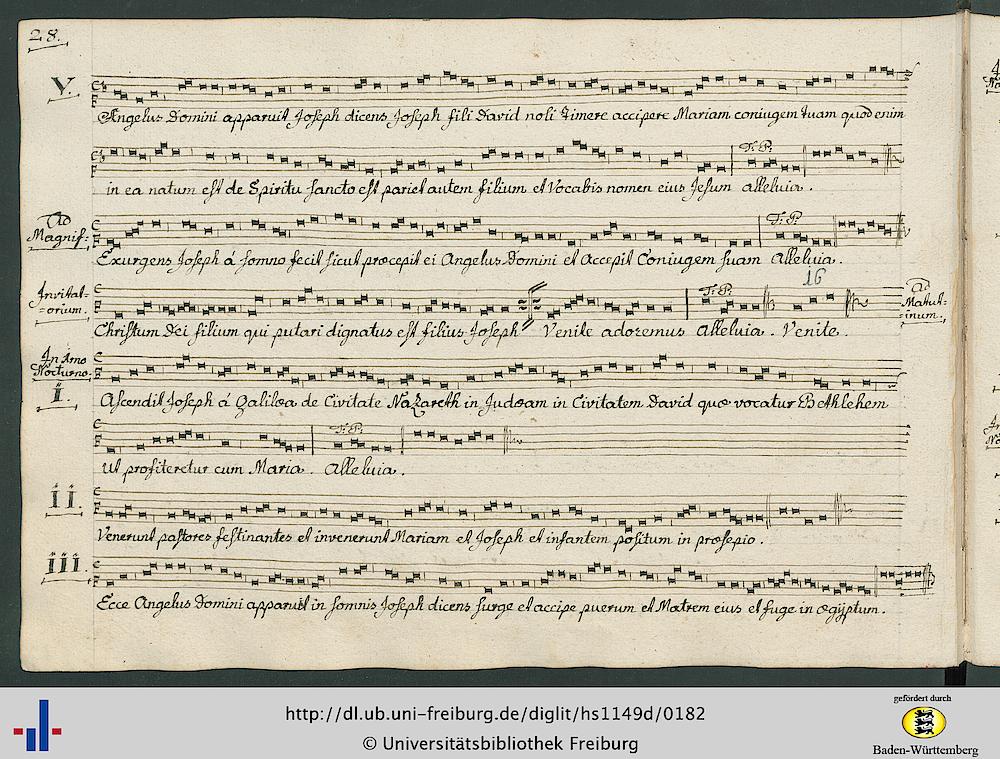 28.
V.
Angelus Domini apparuit Joseph dicens Joseph fili David noli timere accipere Mariam coniugem tuam quod enim
T: P:
in ea natum est de Spiritu sancto est pariet autem filium et Vocabis nomen eius Jesum alleluia.
Ad Magnif: T: P:
Exurgens Joseph á somno fecit sicut præcepit ei Angelus Domini et Accepit Coniugem suam Alleluia.
16
Invitat=orium. T: P: Ad Matut=inum.
Christum Dei filium qui putari dignatus est filius Joseph Venite adoremus Alleluia. Venite.
In 1mo Nocturno.
i.
Ascendit Joseph á Galilæa de Civitate Nazareth in Judæam in Civitatem David quæ vocatur Bethlehem
T: P:
ut profiteretur cum Maria. Alleluia.
ii.
Venerunt pastores festinantes et invenerunt Mariam et Joseph et infantem positum in præsepio.
iii.
Ecce Angelus Domini apparuit in somnis Joseph dicens surge et accipe puerum et Matrem eius et fuge in ægÿptum.
http://dl.ub.uni-freiburg.de/diglit/hs1149d/0182
© Universitätsbibliothek Freiburg
gefördert durch
Baden-Württemberg